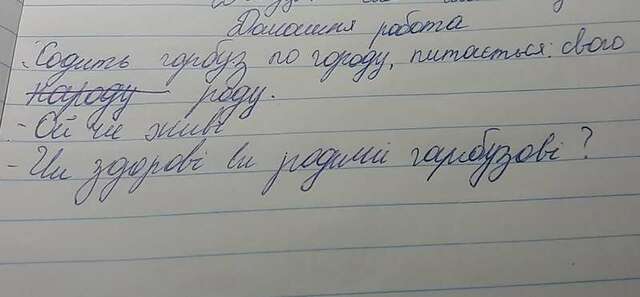 Домашня работа
Ходить гарбуз по городу, питається: свого
народу роду.
- Ой чи живі
- Чи здорові ви родичі гарбузові?